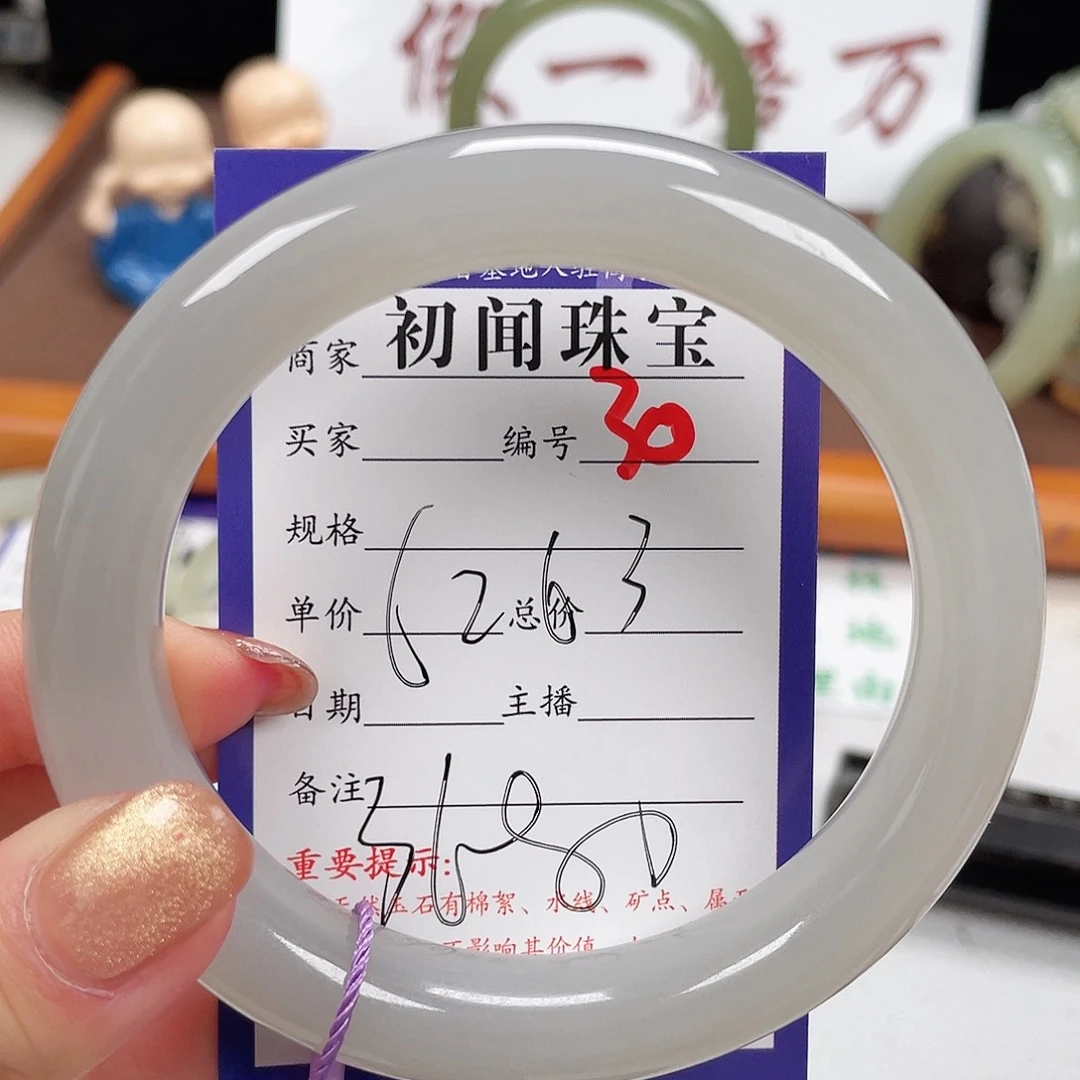 假一赔万
基地入驻商
商家 初闻珠宝
买家 编号 30
规格
单价 总价
6263
日期 主播
备注
3680
重要提示:
天然玉石有棉絮、水线、矿点、属于
不影响其价值